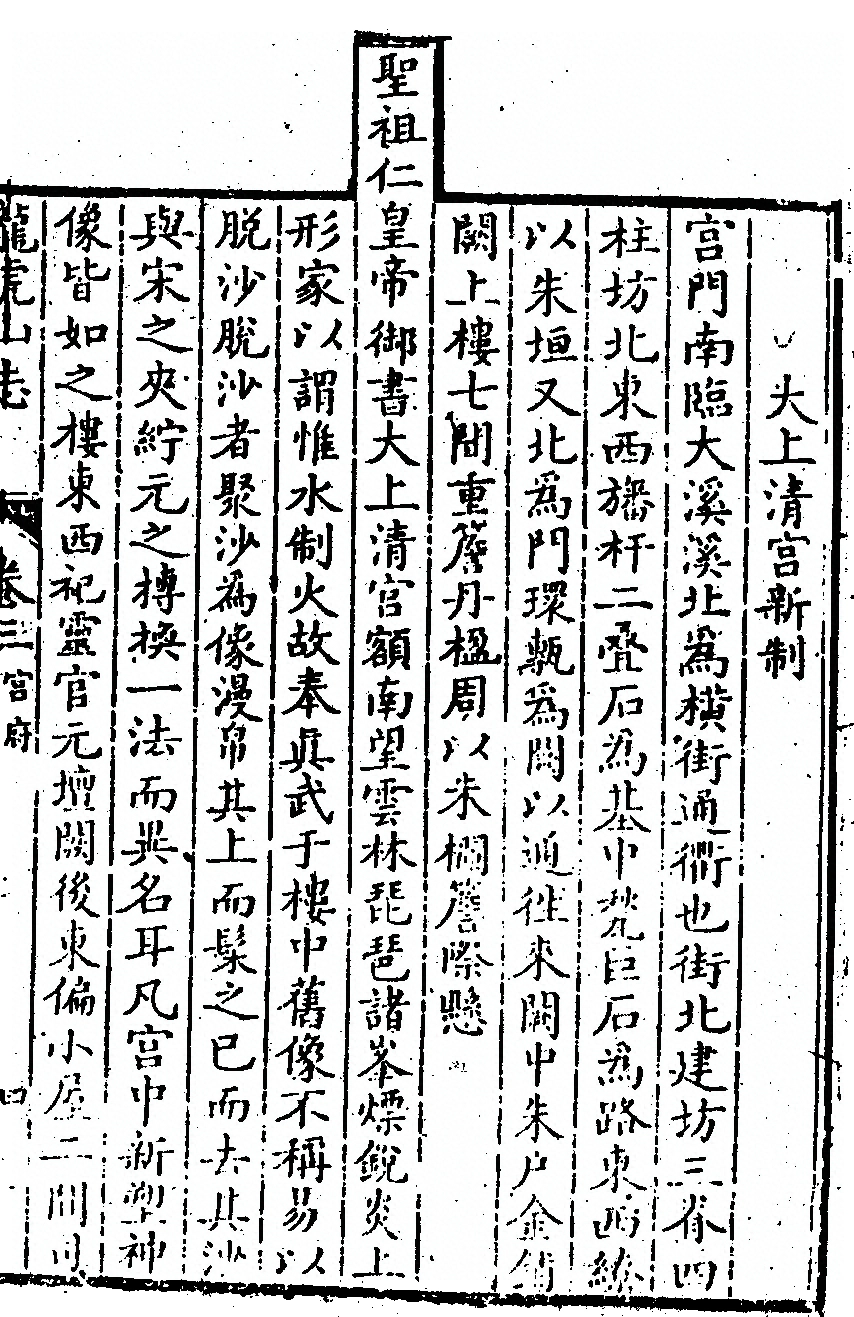 大上清宮新制
宮門南臨大溪溪北為橫街通衢也街北建坊三脊四
柱坊北東西旛杆二疊石為基中甃巨石為路東西繚
以朱垣又北為門環甎為闕以通往來闕中朱戶金鋪
闕上樓七間重簷丹楹周以朱欄簷際懸
聖祖仁皇帝御書大上清宮額南望雲林琵琶諸峯煙銳炎上
形家以謂惟水制火故奉眞武于樓中舊像不稱易以
脱沙脫沙者聚沙為像漫帛其上而髹之已而去其沙
與宋之夾紵元之摶換一法而異名耳凡宮中新塑神
像皆如之樓東西祀靈官元壇闕後東偏小屋二間司
龍虎山志 卷三 宮府 四